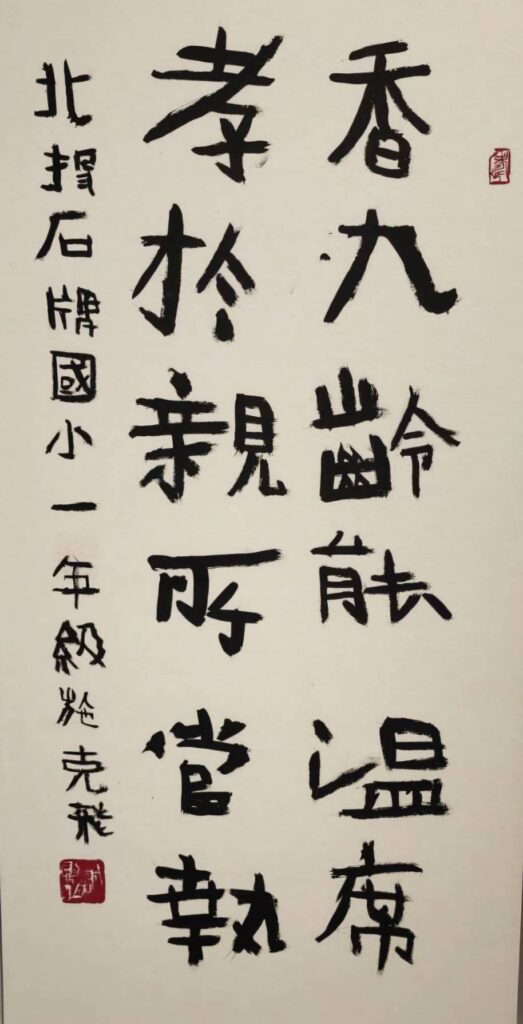 香九齡能溫席
孝於親所當執
北投石牌國小一年級施克飛